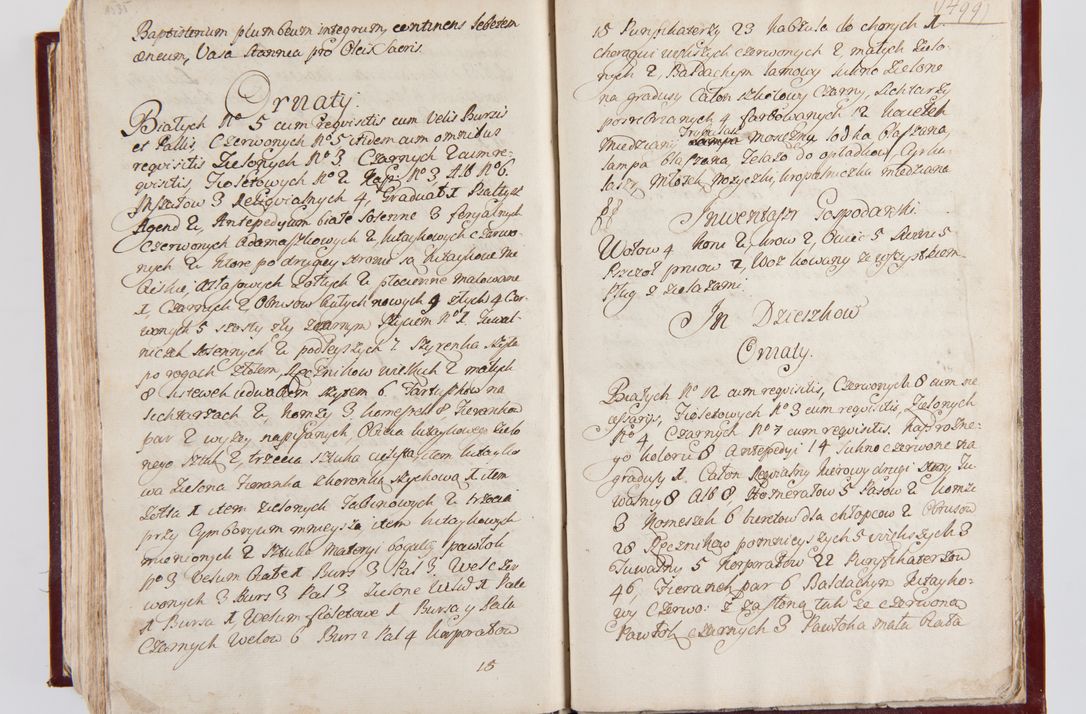 Baptisterium plumbeum integrum, continens lebetem
æneum, Vasa stannea pro Oleis Sacris.
Ornaty.
Białych Nº 5 cum requisitis cum Velis Bursis
et Pallis, Czerwonych Nº 5 itidem cum omnibus
requisitis Zielonych Nº 3 Czarnych 2 cum re-
quisitis, Fioletowych Nº 2 Kap: Nº 3 Alb Nº 6.
Mszałów 3 Religwialnych 4, Graduał 1 Psałtysz
Agend 2, Antepedyum białe solenne 3 feryalnych
Czerwonych adamaszkowych 2, kitaykowych czerwo-
nych 2 ktore po drugiey stronie są kitaykowe nie
bieskie, Atłasowych żołtych 2 płocienne malowane
1, Czarnych 2 Obrusow białych nowych 9 złych 4 Czer-
wonych 5 szosty zły czarnym szyciem Nº 1. Tuwal-
niczek solennych 2 podleyszych 7 Szyrenka szyta
po rogach złotem, Ręczników wielkich 2 małych
8 listewek iedwabiem szytem 6 Fartuchow na
lichtarzach 2 Komży 3 Komeszek 8 Firankow
par 2 wyzey napisanych
nego sztuk 2, trzecia sztuka item kitayko
wa zielona Firanka Choronki szychowa 1 item
żołta 1 item zielonych Tabinowych 2 trzecia
przy Cymboryum mnieysza item kitaykowych
mienionych 2 sztuka materyi bogatey pawłok
Nº 3 Velum białe 1 Burs 3 Pal 3. Wel Czer
wonych 3 Burs 3 Pal 3 Zielone Wel 1 Pale
1 Bursa 1 Welum fioletowe 1 Bursa y Pale
Czarnych Welow 6 Burs 2 Pal 4 Korporałow
15
499
15 Puryfikaterzy 23 Nabzula do chorych 1.
choragwi czerwonych 2 małych zielo-
nych 2 Baldachym lamowy sukno zielone
na gradusy Całon szkolowy czarny, Lichtarzy
posrebrzanych 4 farbowanych 12 Kociełek
miedziany Trybularz mosiężny łodka blaszana,
lampa blaszana żelazo do opłatkow, Cyrku-
larz, Młotek Nozyczki, kropielniczka miedziana
Inwentarz Gospodarski.
Wołow 4 Koni 2 krow 2, Owiec 5 Swini 5
Pszczoł pniow 2, Woz kowany ze wszystkiem
Pług z żelazami.
In Dzieszkow
Ornaty.
Białych Nº 12 cum requisitis, Czerwonych 8 cum ne
cessariis, Fioletowych Nº 3 cum requisitis, Zielonych
Nº 4, Czarnych Nº 7 cum requisitis. Kap rozne-
go koloru 8 Antepedyi 14 sukno czerwone na
gradusy 1. Całon kirowy drugi szary Tu-
walny 8 Alb 8 Humerałow 5 Pasow 2 Komże
3 Komeszek 6 biretow dla chłopcow 2 Obrusow
28 Ręcznikow pomnieyszych 5 większych 3
Tuwalny 5 Korporałow 22 Puryfikaterzow
46, Firanek par 6 Baldachym kitayko-
wy czerwo: z zasłoną tak ze czerwoną
Pawłok czarnych 3 Pawłoka mała biała